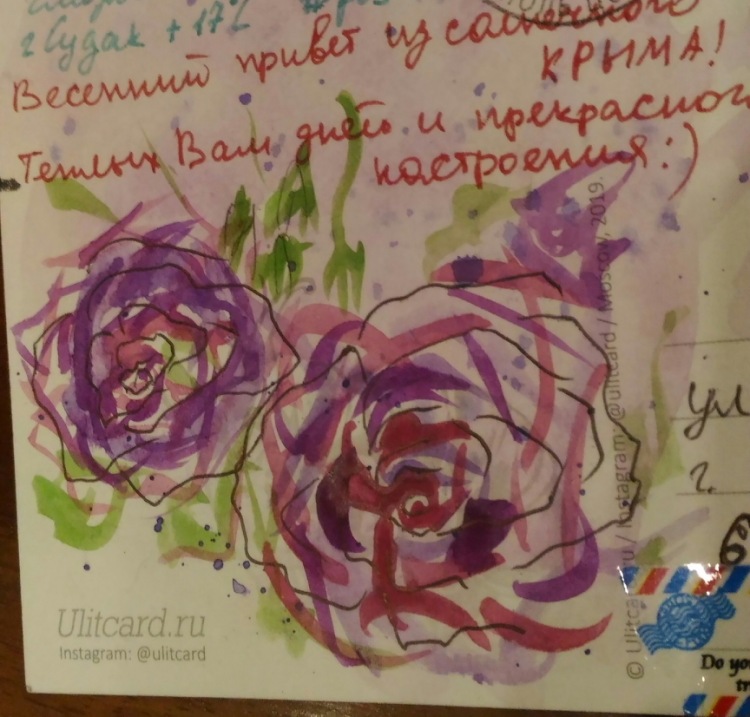 г Судак + 17
Весенний привет из солнечного
КРЫМА!
Теплых Вам дней и прекрасного
настроения:)
ул
г.
Ulitcard.ru
Instagram: @ulitcard
© Ulitcard.ru / Instagram: @ulitcard / Moscow, 2019.
Do you
tr